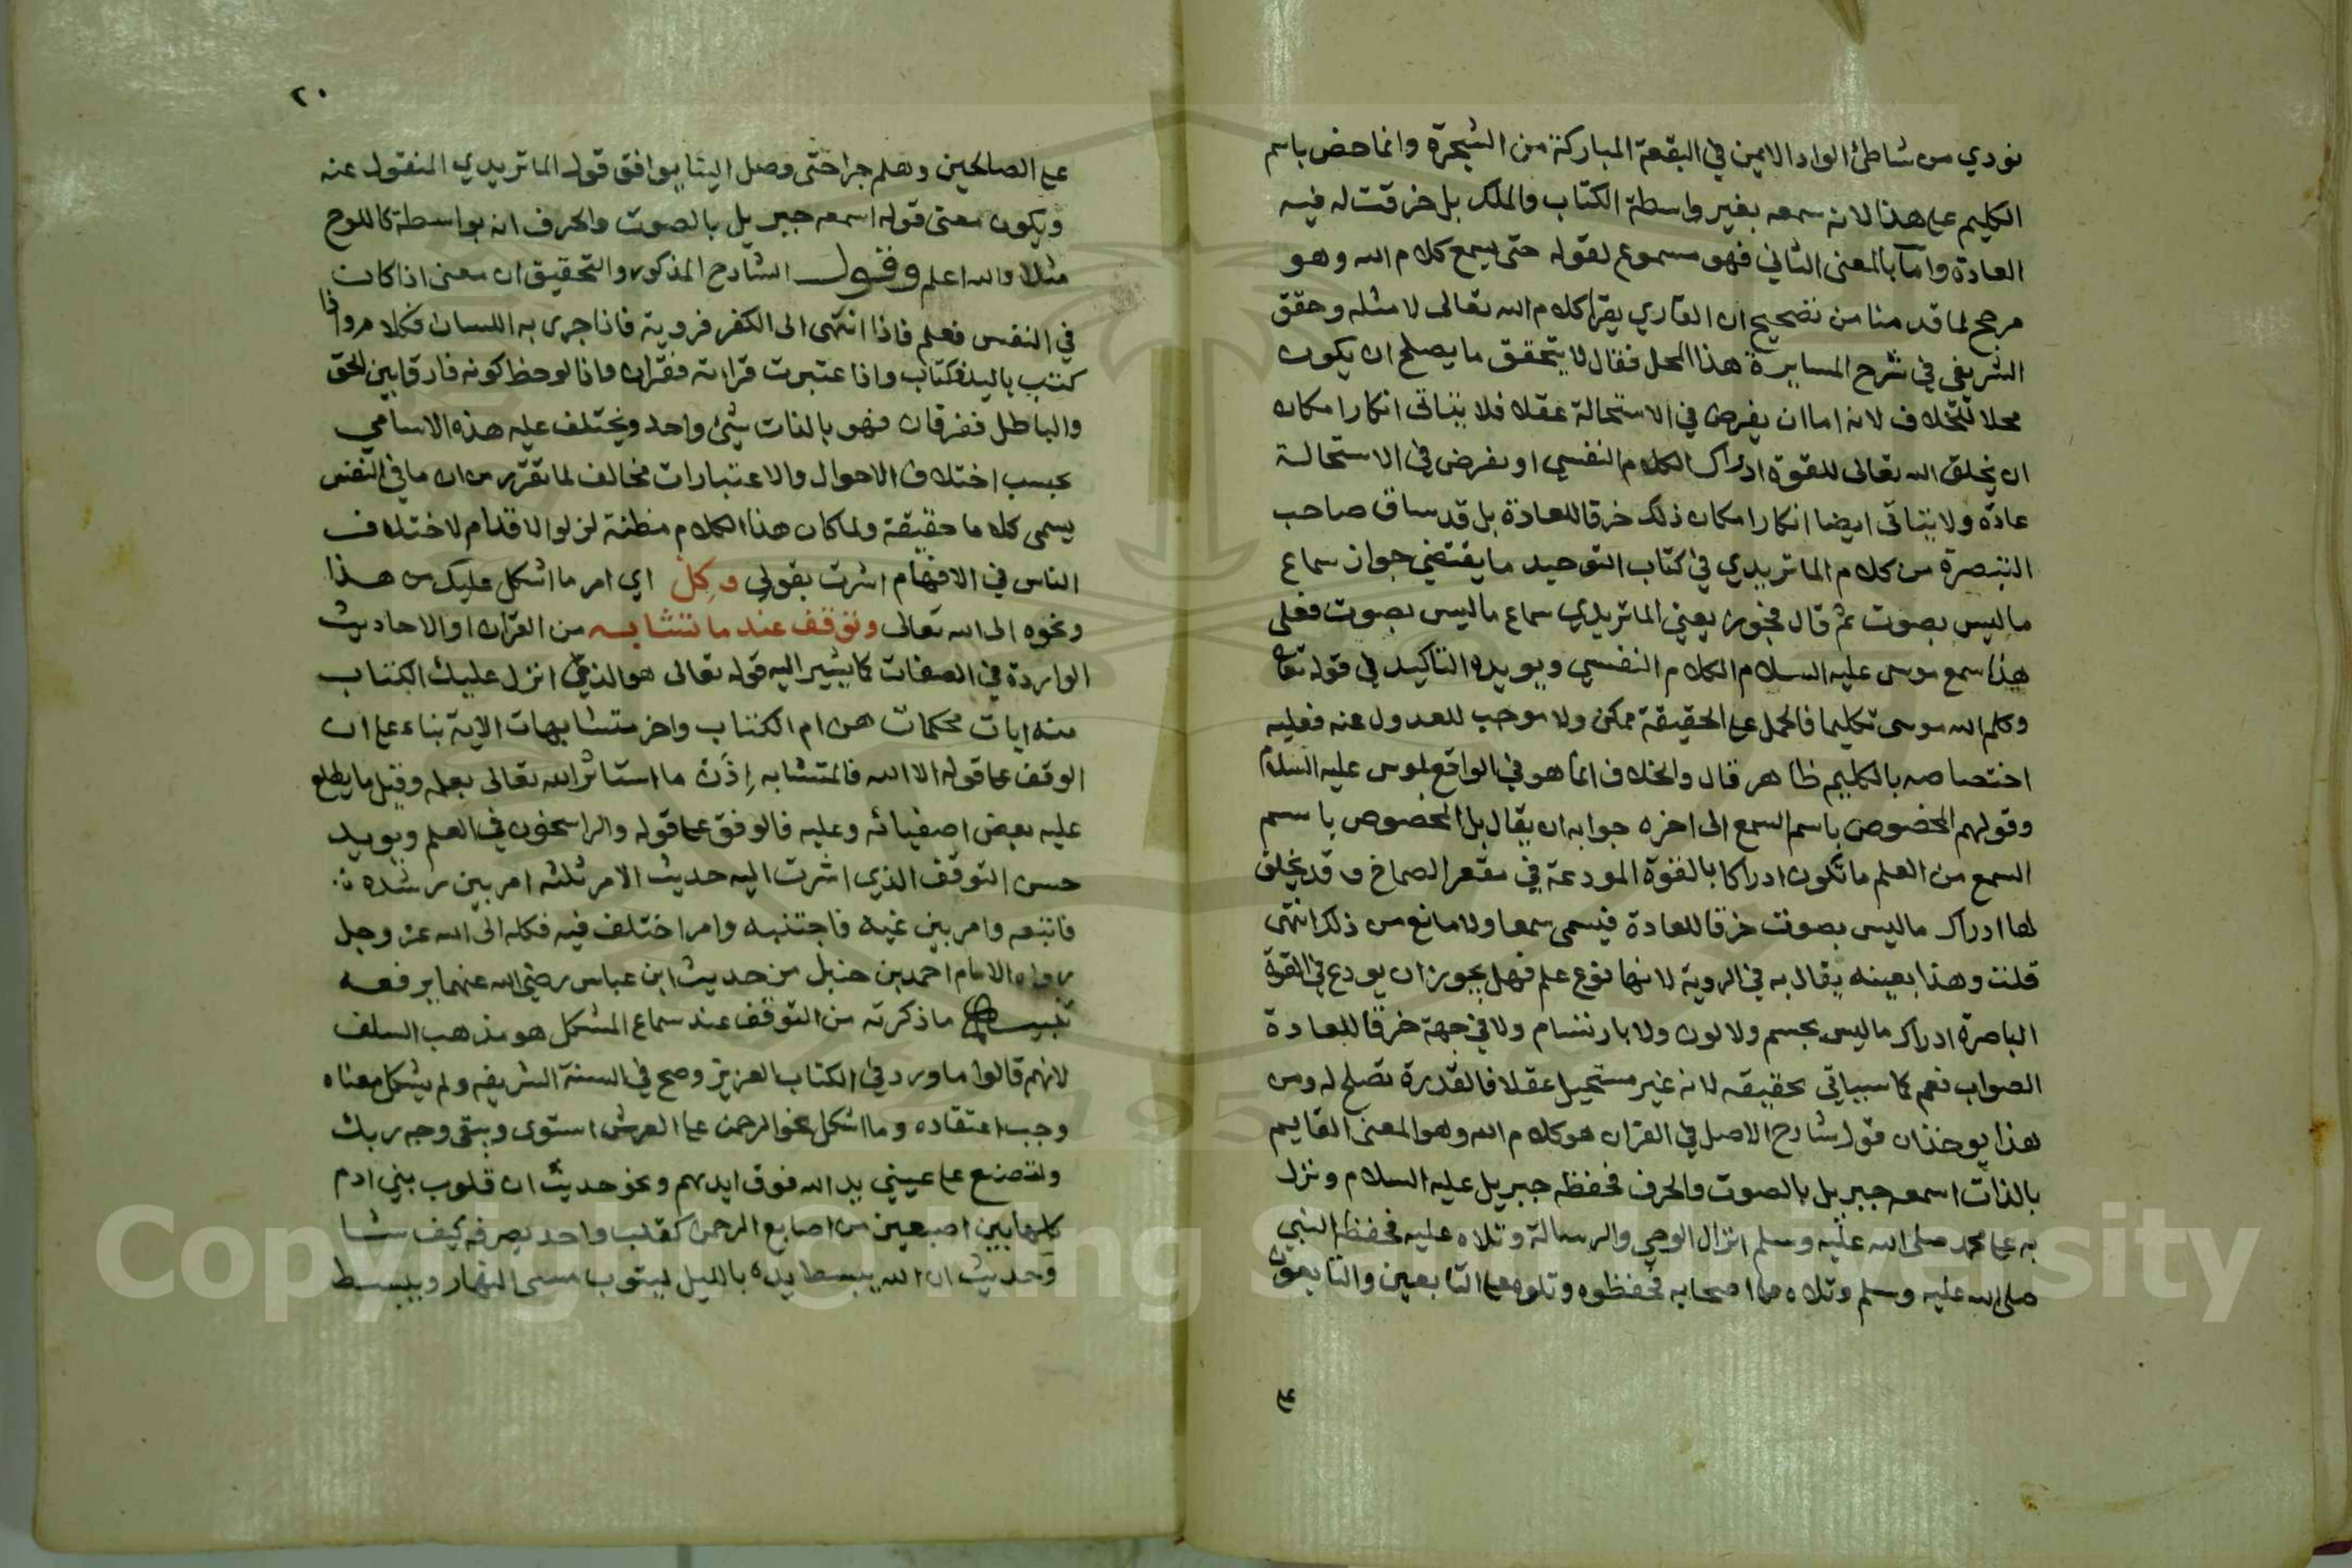 نودي من شاطئ الواد الايمن في البقعة المباركة من الشجرة وانما خص باسم
الكليم على هذا لانه سمعه بغير واسطة الكتاب والملك بل خرقت له فيه
العادة واما بالمعنى الثاني فهو مسموع لقوله حتى يسمع كلام الله وهو
مرجح لما قدمنا من تصحيح ان القاري يقرا كلام الله تعالى لا مثله وحقق
الشريفي في شرح المسايرة هذا المحل فقال لا يتحقق ما يصلح ان يكون
محلا للخلاف لانه اما ان يفرض في الاستحالة عقلا فلا يتاتى انكار امكان
ان يخلق الله تعالى للقوة ادراك الكلام النفسي او يفرض في الاستحالة
عادة ولا يتاتى ايضا انكار امكان ذلك خرقا للعادة بل قد ساق صاحب
التبصرة من كلام الماتريدي في كتاب التوحيد ما يقتضي جواز سماع
ما ليس بصوت ثم قال فجوز يعني الماتريدي سماع ما ليس بصوت فعلى
هذا سمع موسى عليه السلام الكلام النفسي ويويده التاكيد في قوله تعالى
وكلم الله موسى تكليما فالحمل على الحقيقة ممكن ولا موجب للعدول عنه فعليه
اختصاصه بالكليم ظاهر قال والخلاف انما هو في الواقع لموسى عليه السلام
وقولهم المخصوص باسم السمع الى اخره جوابه ان يقال بل المخصوص باسم
السمع من العلم ما تكون ادراكا بالقوة المودعة في مقعر الصماخ وقد يخلق
لها ادراك ما ليس بصوت خرقا للعادة فيسمى سمعا ولا مانع من ذلك انتهى
قلت وهذا بعينه يقال به في الروية لانها نوع علم فهل يجوز ان يودع في القوة
الباصرة ادراك ما ليس بجسم ولا لون ولا بارتسام ولا في جهة خرقا للعادة
الصواب نعم كما سياتي تحقيقه لانه غير مستحيل عقلا فالقدرة تصلح له ومن
هذا يوخذ ان قول شارح الاصل في القران هو كلام الله وهو المعنى القايم
بالذات اسمعه جبريل بالصوت والحرف فحفظه جبريل عليه السلام ونزل
به على محمد صلى الله عليه وسلم انزال الوحي والرسالة وتلاه عليه فحفظه النبي
صلى الله عليه وسلم وتلاه على اصحابه فحفظوه وتلوه على التابعين والتابعون
على
٢٠
على الصالحين وهلم جرا حتى وصل الينا يوافق قول الماتريدي المنقول عنه
ويكون معنى قوله اسمعه جبريل بالصوت والحرف انه بواسطة كاللوح
مثلا والله اعلم وقول الشارح المذكور والتحقيق ان معنى اذا كان
في النفس فعلم فاذا انتهى الى الكفر فروية فاذا جرى به اللسان فكلام واذا
كتب باليد فكتاب واذا عتبرت قراءته فقران واذا لوحظ كونه فارقا بين الحق
والباطل ففرقان فهو بالذات شئ واحد ويختلف عليه هذه الاسامي
بحسب اختلاف الاحوال والاعتبارات مخالف لما تقرر من ان ما في النفس
يسمى كلاما حقيقة ولما كان هذا الكلام مظنة لزلو الاقدام لاختلاف
الناس في الافهام اشرت بقولي وكل اي امر ما اشكل عليك من هذا
ونحوه الى الله تعالى وتوقف عند ما تشابه من القران او الاحاديث
الواردة في الصفات كما يشير اليه قوله تعالى هو الذي انزل عليك الكتاب
منه ايات محكمات هن ام الكتاب واخر متشابهات الاية بناء على ان
الوقف على قوله الا الله فالمتشابه إذن ما استاثر الله تعالى بعلمه وقيل ما يطلع
عليه بعض اصفيائه وعليه فالوقف على قوله والراسخون في العلم ويويد
حسن التوقف الذي اشرت اليه حديث الامر ثلثه امر بين رشده
فاتبعه وامر بين غيه فاجتنبه وامر اختلف فيه فكله الى الله عز وجل
رواه الامام احمد بن حنبل من حديث ابن عباس رضي الله عنهما يرفعه
تنبيه ما ذكرته من التوقف عند سماع المشكل هو مذهب السلف
لانهم قالوا ما ورد في الكتاب العزيز وصح في السنة الشريفه ولم يشكل معناه
وجب اعتقاده وما اشكل نحو الرحمن على العرش استوى ويبقى وجه ربك
ولتصنع على عيني يد الله فوق ايديهم ونحو حديث ان قلوب بني ادم
كلها بين اصبعين من اصابع الرحمن كقلب واحد يصرفه كيف شا
وحديث ان الله يبسط يده بالليل ليتوب مسى النهار ويبسط
Copyright © King Saud University